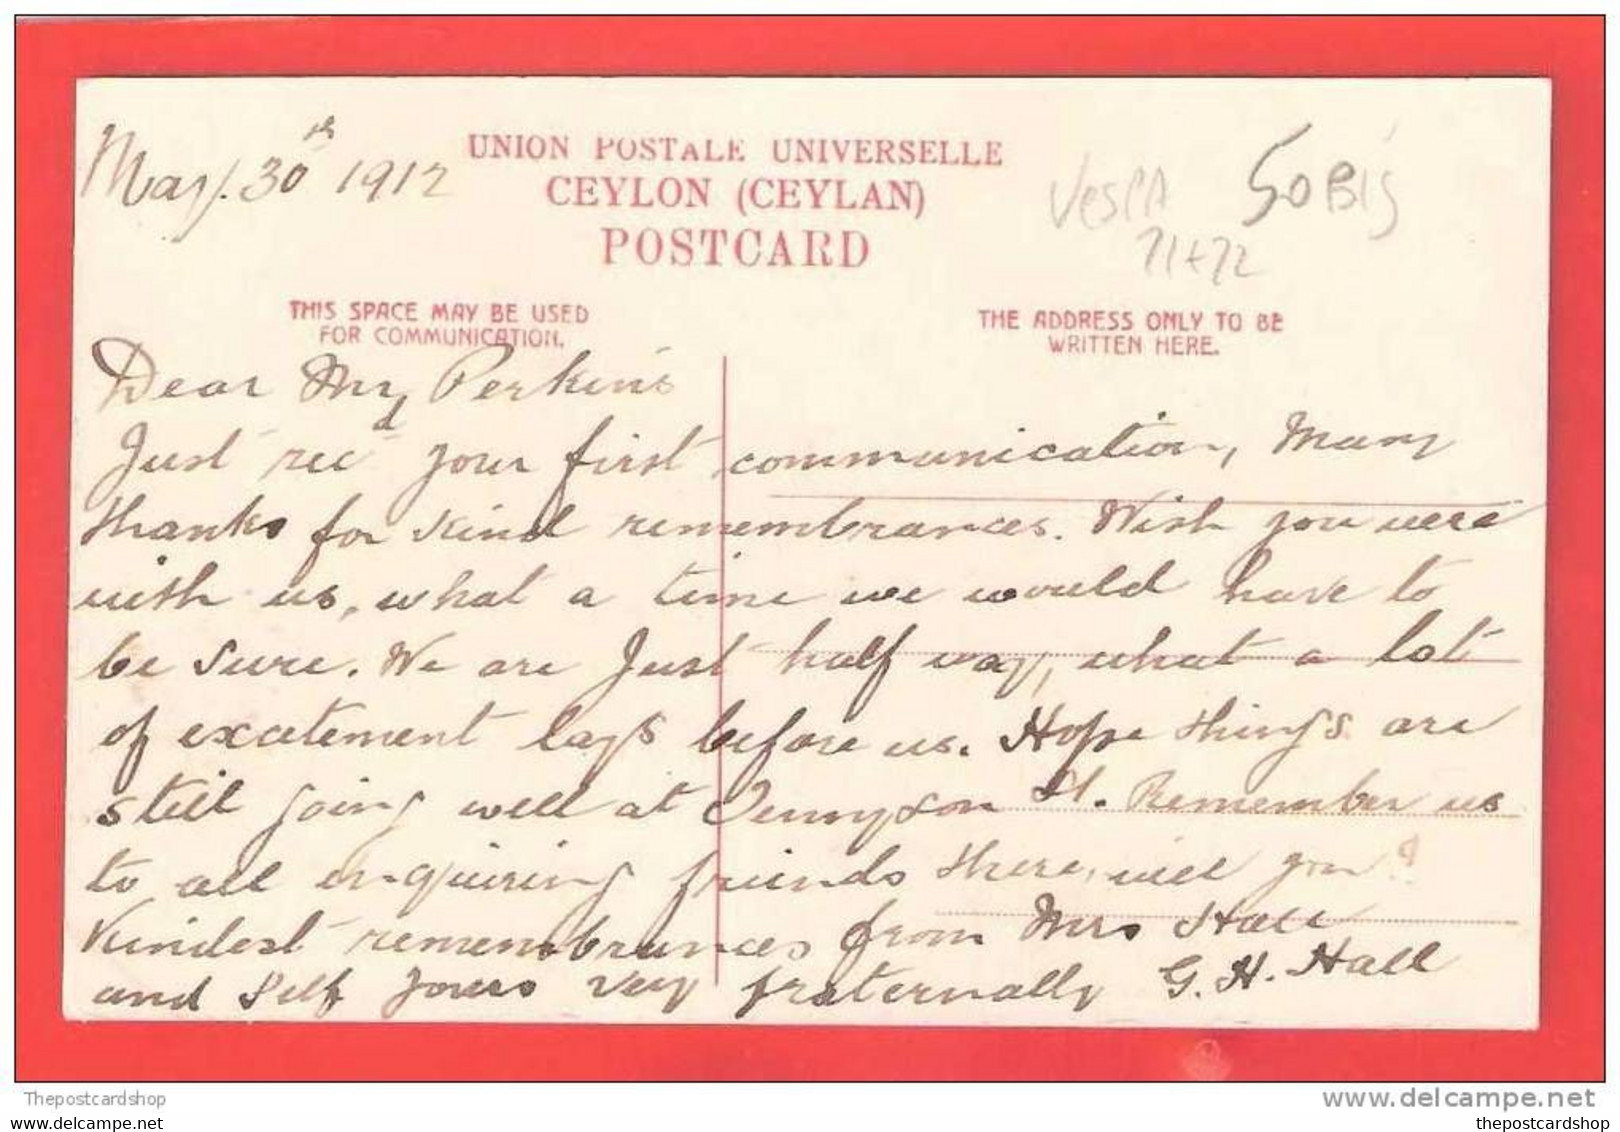 May. 30th 1912
UNION POSTALE UNIVERSELLE
CEYLON (CEYLAN)
POSTCARD
VesPA 50Bis
71+72
THIS SPACE MAY BE USED
FOR COMMUNICATION.
THE ADDRESS ONLY TO BE
WRITTEN HERE.
Dear Mr Perkins
Just recd your first communication, Many
thanks for kind remembrances. Wish you were
with us, what a time we would have to
be sure. We are Just half way, what a lot
of excitement lays before us. Hope things are
still going well at Tennyson St. Remember us
to all enquiring friends there, will you?
Kindest remembrances from Mrs Hall
and Self Yours very fraternally G. H. Hall
Thepostcardshop
www.delcampe.net
thepostcardshop